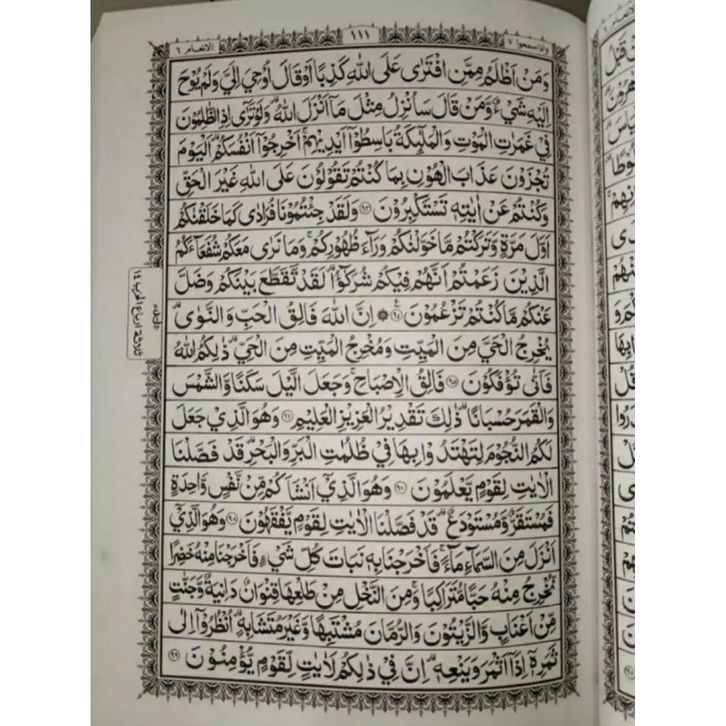 الانعام ٦ ١١١ واذا سمعوا ٧
وَمَنْ اَظْلَمُ مِمَّنِ افْتَرٰى عَلَى اللّٰهِ كَذِبًا اَوْ قَالَ اُوْحِيَ اِلَيَّ وَلَمْ يُوْحَ
اِلَيْهِ شَيْءٌ وَّمَنْ قَالَ سَاُنْزِلُ مِثْلَ مَآ اَنْزَلَ اللّٰهُ ۗ وَلَوْ تَرٰٓى اِذِ الظّٰلِمُوْنَ
فِيْ غَمَرٰتِ الْمَوْتِ وَالْمَلٰۤىِٕكَةُ بَاسِطُوْٓا اَيْدِيْهِمْ ۚ اَخْرِجُوْٓا اَنْفُسَكُمْ ۗ اَلْيَوْمَ
تُجْزَوْنَ عَذَابَ الْهُوْنِ بِمَا كُنْتُمْ تَقُوْلُوْنَ عَلَى اللّٰهِ غَيْرَ الْحَقِّ
وَكُنْتُمْ عَنْ اٰيٰتِهٖ تَسْتَكْبِرُوْنَ ٩٣ وَلَقَدْ جِئْتُمُوْنَا فُرَادٰى كَمَا خَلَقْنٰكُمْ
اَوَّلَ مَرَّةٍ وَّتَرَكْتُمْ مَّا خَوَّلْنٰكُمْ وَرَاۤءَ ظُهُوْرِكُمْ ۚ وَمَا نَرٰى مَعَكُمْ شُفَعَاۤءَكُمُ
الَّذِيْنَ زَعَمْتُمْ اَنَّهُمْ فِيْكُمْ شُرَكٰۤؤُا ۗ لَقَدْ تَّقَطَّعَ بَيْنَكُمْ وَضَلَّ
عَنْكُمْ مَّا كُنْتُمْ تَزْعُمُوْنَ ٩٤ ۞ اِنَّ اللّٰهَ فَالِقُ الْحَبِّ وَالنَّوٰى ۗ
يُخْرِجُ الْحَيَّ مِنَ الْمَيِّتِ وَمُخْرِجُ الْمَيِّتِ مِنَ الْحَيِّ ۗ ذٰلِكُمُ اللّٰهُ
فَاَنّٰى تُؤْفَكُوْنَ ٩٥ فَالِقُ الْاِصْبَاحِ ۚ وَجَعَلَ الَّيْلَ سَكَنًا وَّالشَّمْسَ
وَالْقَمَرَ حُسْبَانًا ۗ ذٰلِكَ تَقْدِيْرُ الْعَزِيْزِ الْعَلِيْمِ ٩٦ وَهُوَ الَّذِيْ جَعَلَ
لَكُمُ النُّجُوْمَ لِتَهْتَدُوْا بِهَا فِيْ ظُلُمٰتِ الْبَرِّ وَالْبَحْرِ ۗ قَدْ فَصَّلْنَا
الْاٰيٰتِ لِقَوْمٍ يَّعْلَمُوْنَ ٩٧ وَهُوَ الَّذِيْٓ اَنْشَاَكُمْ مِّنْ نَّفْسٍ وَّاحِدَةٍ
فَمُسْتَقَرٌّ وَّمُسْتَوْدَعٌ ۗ قَدْ فَصَّلْنَا الْاٰيٰتِ لِقَوْمٍ يَّفْقَهُوْنَ ٩٨ وَهُوَ الَّذِيْٓ
اَنْزَلَ مِنَ السَّمَاۤءِ مَاۤءً ۚ فَاَخْرَجْنَا بِهٖ نَبَاتَ كُلِّ شَيْءٍ فَاَخْرَجْنَا مِنْهُ خَضِرًا
نُّخْرِجُ مِنْهُ حَبًّا مُّتَرَاكِبًا ۚ وَمِنَ النَّخْلِ مِنْ طَلْعِهَا قِنْوَانٌ دَانِيَةٌ وَّجَنّٰتٍ
مِّنْ اَعْنَابٍ وَّالزَّيْتُوْنَ وَالرُّمَّانَ مُشْتَبِهًا وَّغَيْرَ مُتَشَابِهٍ ۗ اُنْظُرُوْٓا اِلٰى
ثَمَرِهٖٓ اِذَآ اَثْمَرَ وَيَنْعِهٖ ۗ اِنَّ فِيْ ذٰلِكُمْ لَاٰيٰتٍ لِّقَوْمٍ يُّؤْمِنُوْنَ ٩٩
ثلاثة ارباع الحزب ١٤